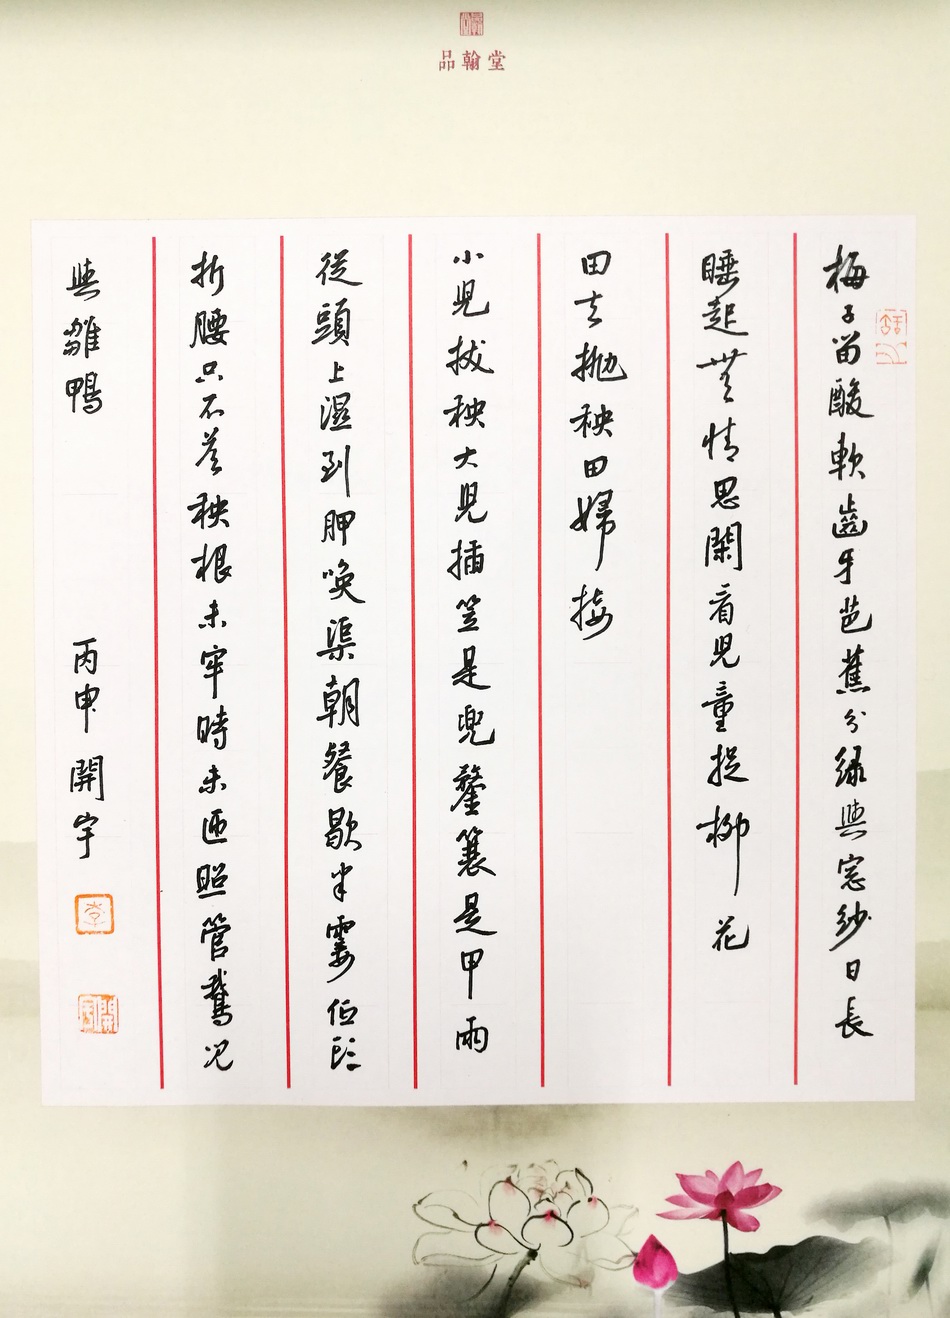 品翰堂
梅子留酸軟齒牙芭蕉分綠與窓紗日長
睡起無情思閑看兒童捉柳花
田夫拋秧田婦接
小兒拔秧大兒插笠是兜鍪蓑是甲雨
從頭上濕到胛喚渠朝餐歇半霎低頭
折腰只不答秧根未牢時未匝照管鵝兒
與雛鴨 丙申 開宇
李